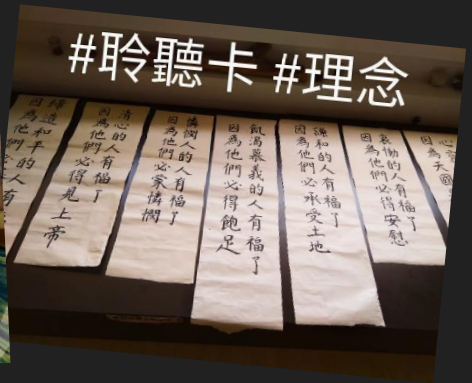 #聆聽卡 #理念
心
因為天國
哀慟的人有福了
因為他們必得安慰
謙和的人有福了
因為他們必承受土地
飢渴慕義的人有福了
因為他們必得飽足
憐憫人的人有福了
因為他們必蒙憐憫
清心的人有福了
因為他們必得見上帝
締造和平的人有
因為他們